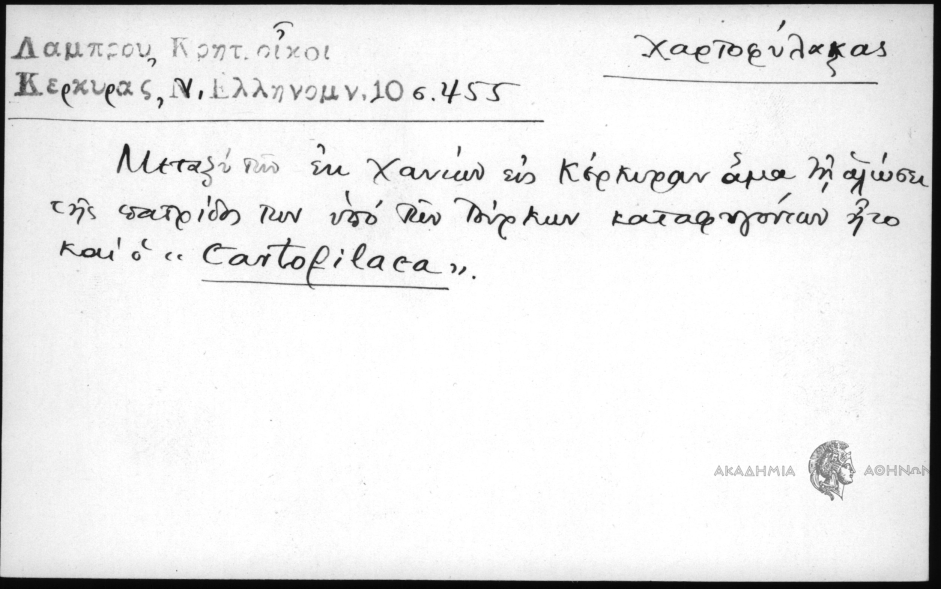 Λαμπρου, Κρητ. οἶκοι
Κερκυρας, Ν. Ελληνομν. 10 σ. 455
Χαρτοφύλακας
Μεταξύ τῶν ἐκ Χανίων εἰς Κέρκυραν ἅμα τῇ ἁλώσει
τῆς πατρίδος των ὑπό τῶν Τούρκων καταφυγόντων ἦτο
καί ὁ « Cartofilaca ».
ΑΚΑΔΗΜΙΑ ΑΘΗΝΩΝ